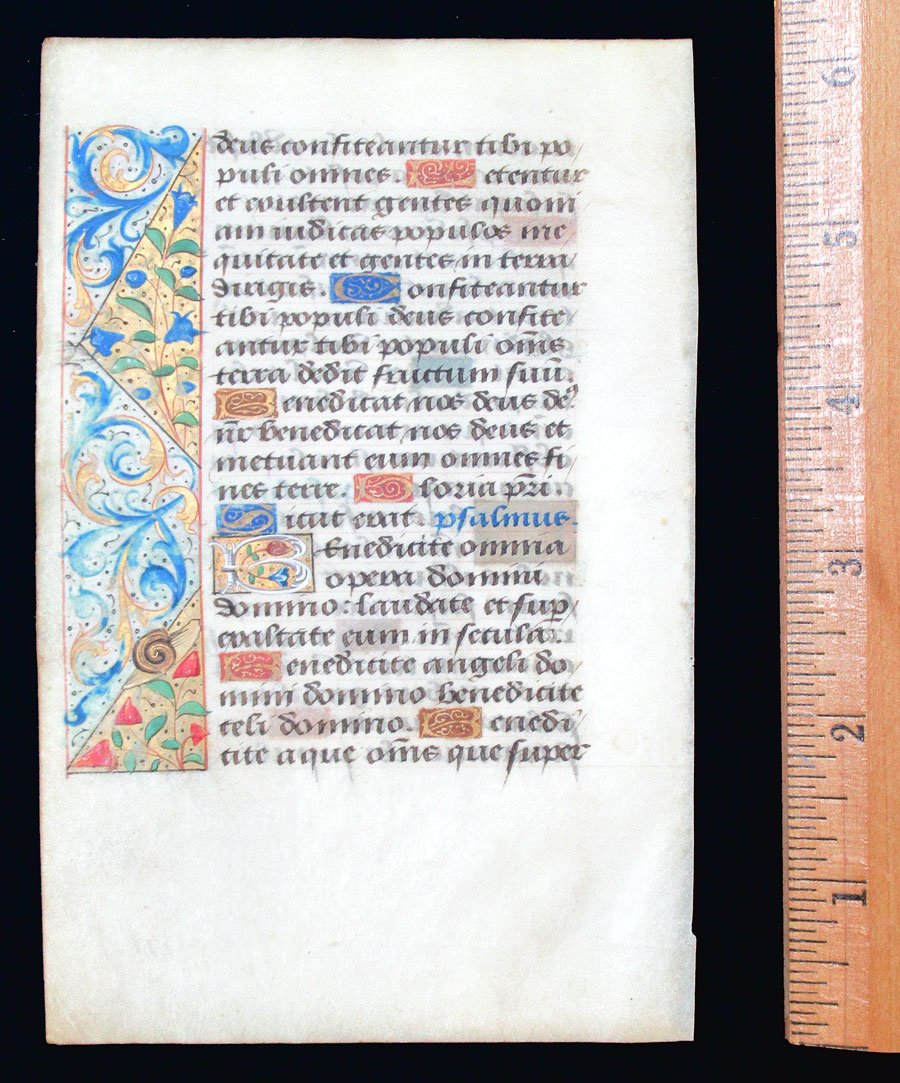 deus confiteantur tibi po
puli omnes Letentur
et exultent gentes quoni
am iudicas populos in e
quitate et gentes in terra
dirigis. Confiteantur
tibi populi deus confite
antur tibi populi om̄s
terra dedit fructum suū.
Benedicat nos deus deꝰ
nr̄ benedicat nos deus et
metuant eum omnes fi
nes terre. Gloria pr̄i.
Sicut erat. psalmus.
Benedicite omnia
opera domini
domino: laudate et sup
exaltate eum in secula.
Benedicite angeli do
mini domino benedicite
celi domino. Benedi
cite aque om̄s que super
6
5
4
3
2
1